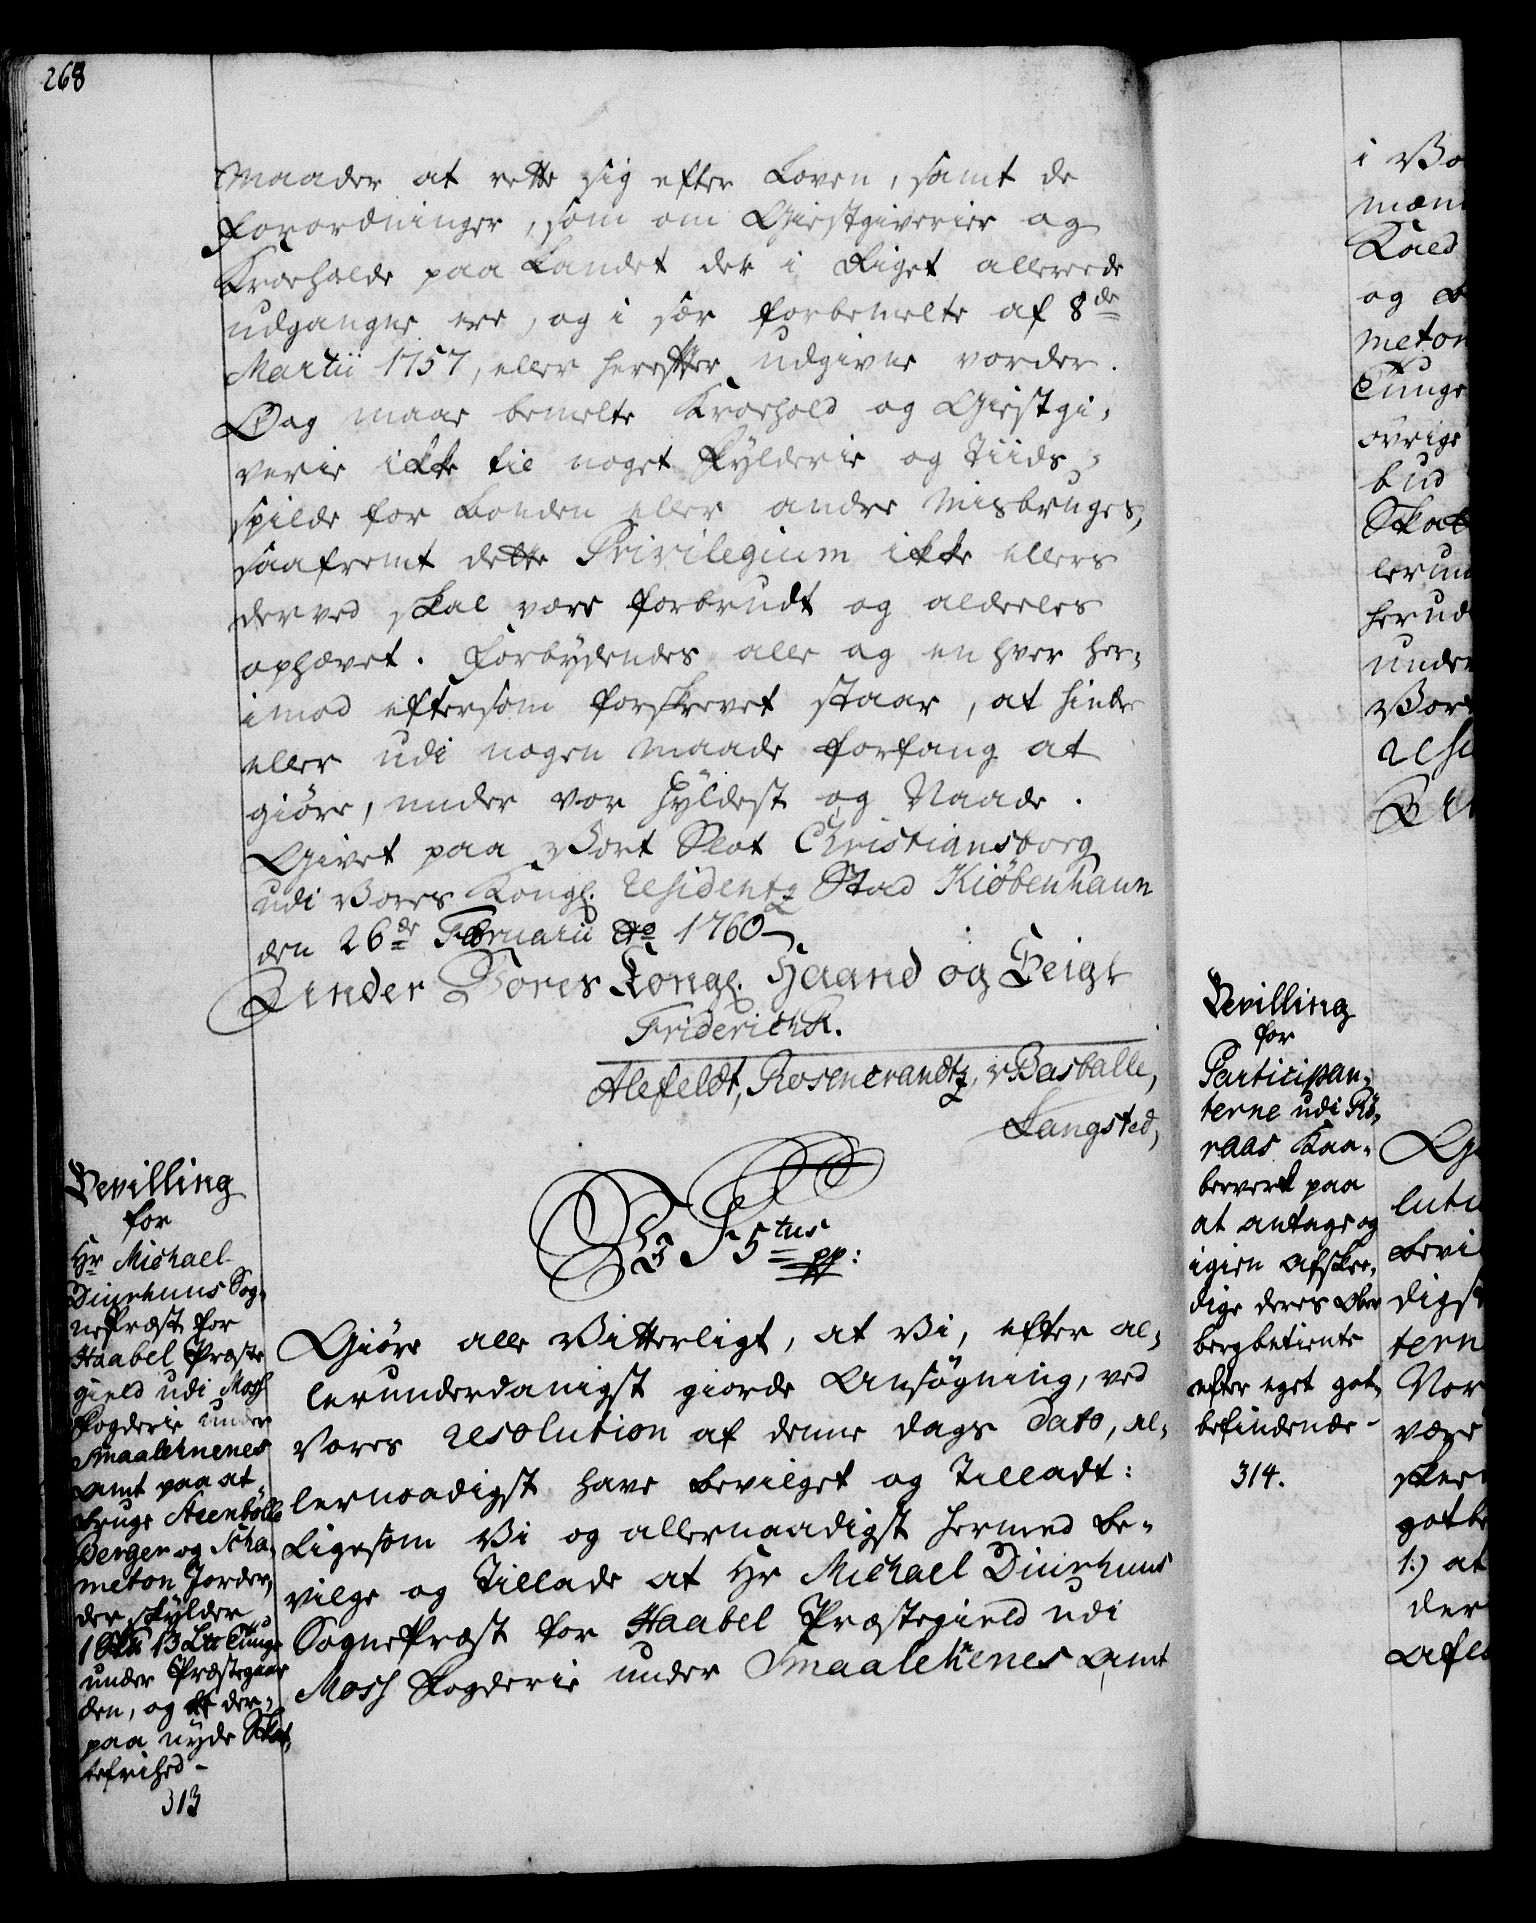 268
Maader at rette sig efter Loven, samt de
Forordninger, som om Giestgiverier og
Kroeholde paa Landet der i Riget allereede
udgangne ere, og i sær forbemelte af 8de
Martii 1757, eller herefter udgivne vorder.
Dog maae bemelte Kroehold og Giestgi-
verie ikke til noget Fylderie og Tiids-
spilde for Bonden eller andre Misbruges,
saafremt dette Privilegium ikke ellers
derved skal være forbrudt og aldeeles
ophævet. Forbydendes alle og en hver her-
imod eftersom forskrevet staar, at hindre
eller udi nogen maade forfang at
giöre, under vor Hyldest og Naade.
Givet paa Vort Slot Christiansborg
udi Vores Kongl. Residentz Stad Kiöbenhaun
den 26de Februarii Ao 1760
Under Vores Kongl. Haand og Seigl
Friderich R.
Alefeldt, Rosencrandtz, v Basballe,
Langsted,
Bevilling
for
Hr Michael
Diurhuus Sog-
nePræst for
Haabel Præste
gield udi Moss
Fogderie under
Smaalehnenes
Amt paa at
bruge
Bergen og Scha-
meton Jorder,
der skylder
1 Skd 13 Ltt Tunge
under Præstegaar
den, og der-
paa nyde Skat-
tefrihed -
313
F 5tus
pp:
Giöre alle Vitterligt, at Vi, efter al-
lerunderdanigst giorde Ansögning, ved
Vores resolution af denne Dags Dato, al-
lernaadigst have bevilget og Tilladt:
Ligesom Vi og allernaadigst hermed be-
vilge og Tillade at Hr Michael Diurhuus
SognePræst for Haabel Præstegield udi
Moss Fogderie under Smaalehenes Amt
Bevilling
for
Participan-
terne udi Rö-
raas Kaa-
berverk paa
at antage og
igien afskee-
dige deres Ober
bergbetiente
efter eget got-
befindende -
314.
i Vo
mæn
Kald
og
meton
Tunge
övrige
bud
Skat
lerun
herud
under
Vore
resi
Un
G
lutio
bevi
digst
tern
Vor
være
skee
gotb
1.) at
der